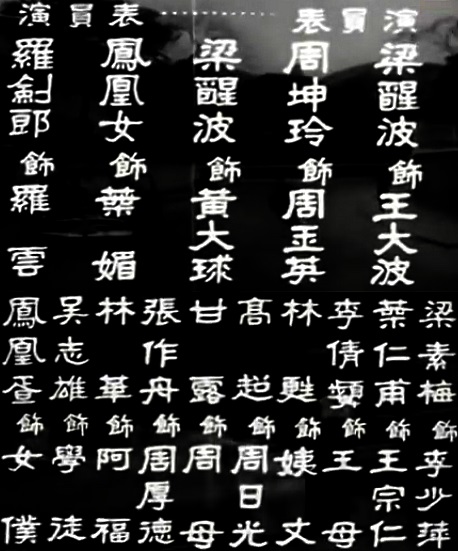 演員表
演員表
梁醒波飾王大波
周坤玲飾周玉英
梁醒波飾黃大球
鳳凰女飾葉媚
羅劍郎飾羅雲
梁素梅飾李少萍
葉仁甫飾王宗仁
李倩飾王母
林甦飾姨丈
高超飾周日光
甘露飾周母
張作舟飾周厚德
林華飾阿福
吳志雄飾學徒
鳳凰疍飾女僕